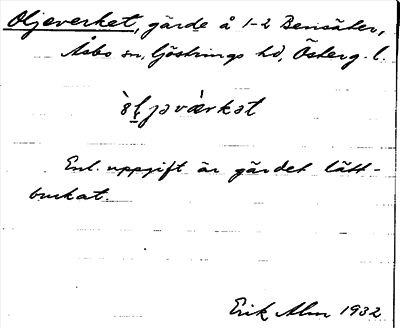 Oljeverket, gärde å 1-2 Bensäter,
Åsbo sn, Göstrings hd, Österg. l.
òl̥jəvàrkət
Enl. uppgift är gärdet lätt-
brukat.
Erik Alm 1932